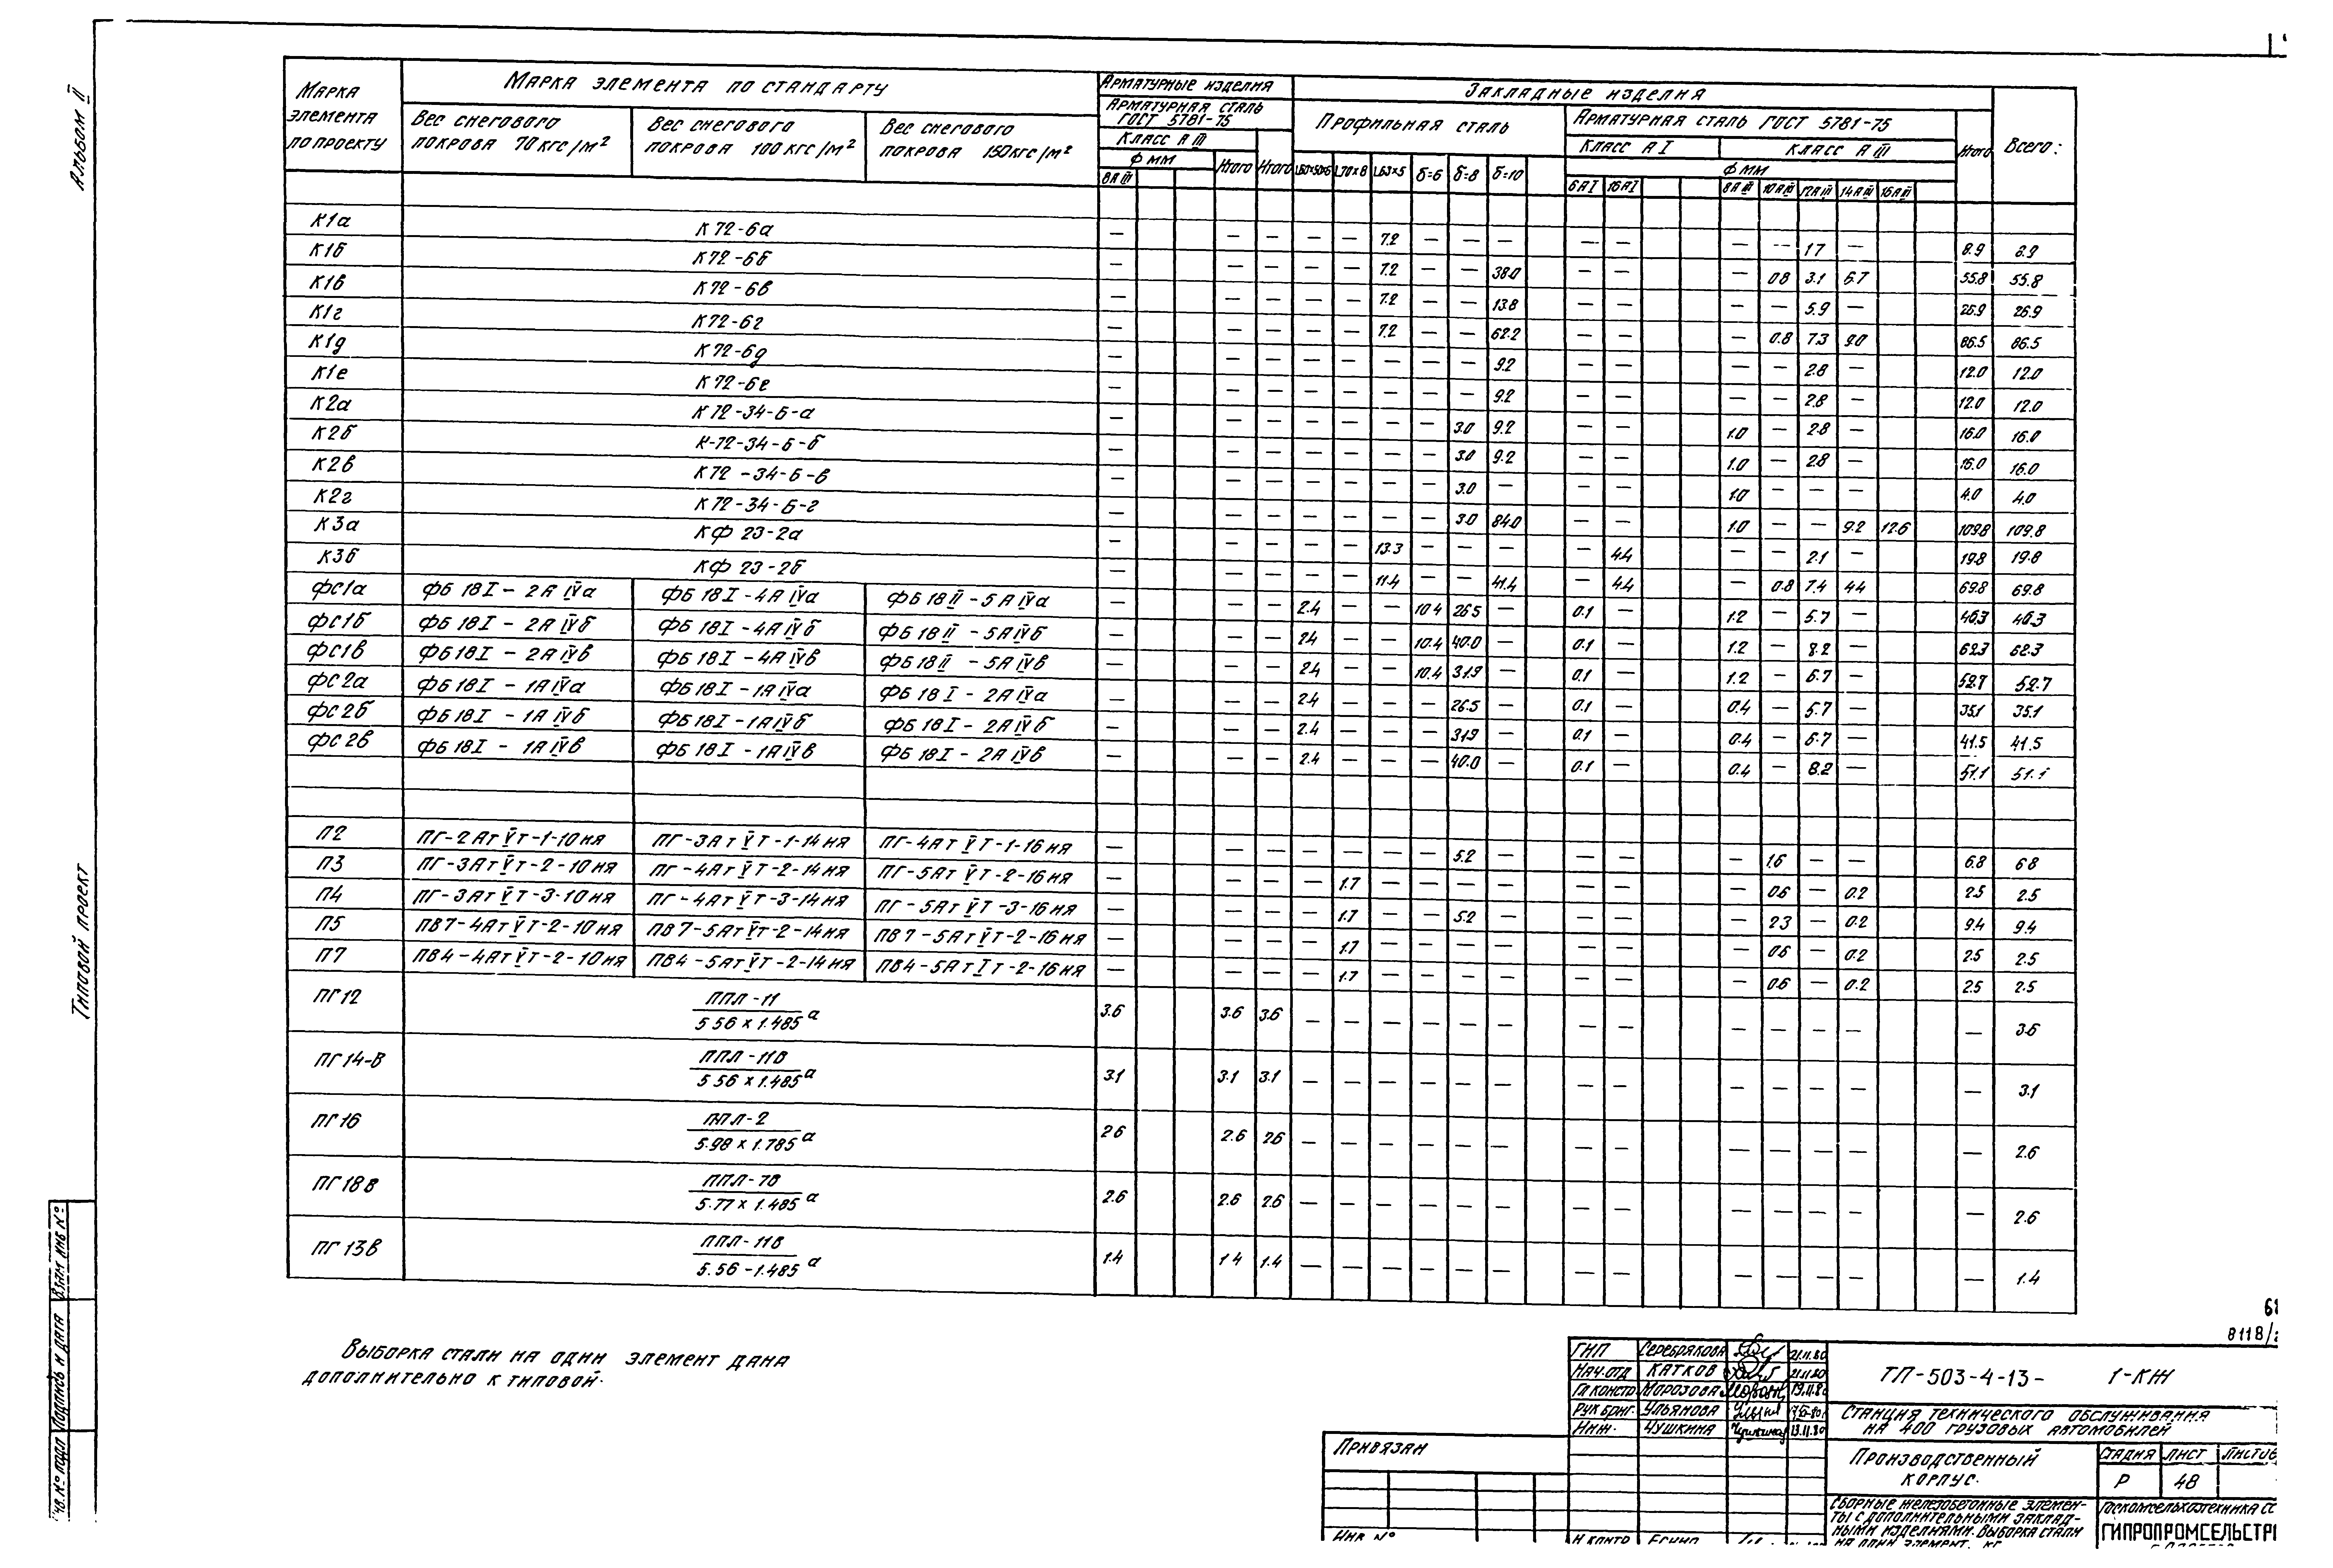 Альбом II
Типовой проект
Взам инв №
Подпись и дата
Инв.№ подл
Марка элемента по проекту
Марка элемента по стандарту
Вес снегового покрова 70 кгс/м²
Вес снегового покрова 100 кгс/м²
Вес снегового покрова 150 кгс/м²
Арматурные изделия
Арматурная сталь ГОСТ 5781-75
Класс А III
Ф мм
8А III
Итого
Итого
Закладные изделия
Профильная сталь
L50×50×6 L70×8 L63×5 δ=6 δ=8 δ=10
Арматурная сталь ГОСТ 5781-75
Класс А I
Класс А III
Ф мм
6АI 16АI 8АIII 10АIII 12АIII 14АIII 16АIII
Итого
Всего:
К1а К72-6а — — — — — 7.2 — — — — — — -- 17 — 8.9 8.9
К1б К72-6б — — — — — 7.2 — — 38.0 — — — 0.8 3.1 6.7 55.8 55.8
К1в К72-6в — — — — — 7.2 — — 13.8 — — — — 5.9 — 26.9 26.9
К1г К72-6г — — — — — 7.2 — — 62.2 — — — 0.8 7.3 9.0 86.5 86.5
К1д К72-6д — — — — — — — — 9.2 — — — — 2.8 — 12.0 12.0
К1е К72-6е — — — — — — — — 9.2 — — — — 2.8 — 12.0 12.0
К2а К72-34-Б-а — — — — — — — 3.0 9.2 — — 1.0 — 2.8 — 16.0 16.0
К2б К-72-34-Б-б — — — — — — — 3.0 9.2 — — 1.0 — 2.8 — 16.0 16.0
К2в К72-34-Б-в — — — — — — — 3.0 — — — 1.0 — — — 4.0 4.0
К2г К72-34-Б-г — — — — — — — 3.0 84.0 — — 1.0 — — 9.2 12.6 109.8 109.8
К3а КФ 23-2а — — — — — 13.3 — — — — 4.4 — — 2.1 — 19.8 19.8
К3б КФ 23-2б — — — — — 11.4 — — 41.4 — 4.4 — 0.8 7.4 4.4 69.8 69.8
ФС1а ФБ 18I-2АIVа ФБ 18I-4АIVа ФБ 18II-5АIVа — — — 2.4 — — 10.4 26.5 — 0.1 — 1.2 — 5.7 — 40.3 40.3
ФС1б ФБ 18I-2АIVб ФБ 18I-4АIVб ФБ 18II-5АIVб — — — 2.4 — — 10.4 40.0 — 0.1 — 1.2 — 8.2 — 62.3 62.3
ФС1в ФБ18I-2АIVв ФБ 18I-4АIVв ФБ 18II-5АIVв — — — 2.4 — — 10.4 31.9 — 0.1 — 1.2 — 6.7 — 52.7 52.7
ФС2а ФБ18I-1АIVа ФБ18I-1АIVа ФБ 18I-2АIVа — — — 2.4 — — — 26.5 — 0.1 — 0.4 — 5.7 — 35.1 35.1
ФС2б ФБ18I-1АIVб ФБ18I-1АIVб ФБ 18I-2АIVб — — — 2.4 — — — 31.9 — 0.1 — 0.4 — 6.7 — 41.5 41.5
ФС2в ФБ18I-1АIVв ФБ 18I-1АIVв ФБ 18I-2АIVв — — — 2.4 — — — 40.0 — 0.1 — 0.4 — 8.2 — 51.1 51.1
П2 ПГ-2АтVТ-1-10ня ПГ-3АтVТ-1-14ня ПГ-4АтVТ-1-16ня — — — — — — — 5.2 — — — — 1.6 — — 6.8 6.8
П3 ПГ-3АтVТ-2-10ня ПГ-4АтVТ-2-14ня ПГ-5АтVТ-2-16ня — — — — 1.7 — — — — — — — 0.6 — 0.2 2.5 2.5
П4 ПГ-3АтVТ-3-10ня ПГ-4АтVТ-3-14ня ПГ-5АтVТ-3-16ня — — — — 1.7 — — 5.2 — — — — 2.3 — 0.2 9.4 9.4
П5 ПВ7-4АтVТ-2-10ня ПВ7-5АтVТ-2-14ня ПВ7-5АтVТ-2-16ня — — — — 1.7 — — — — — — — 0.6 — 0.2 2.5 2.5
П7 ПВ4-4АтVТ-2-10ня ПВ4-5АтVТ-2-14ня ПВ4-5АтIТ-2-16ня — — — — 1.7 — — — — — — — 0.6 — 0.2 2.5 2.5
ПГ12 ППЛ-11 / 5 56×1.485 а 3.6 3.6 3.6 — — — — — — — — — — — — — 3.6
ПГ14-В ППЛ-11В / 5 56×1.485 а 3.1 3.1 3.1 — — — — — — — — — — — — — 3.1
ПГ16 ППЛ-2 / 5.98×1.785 а 2.6 2.6 2.6 — — — — — — — — — — — — — 2.6
ПГ18в ППЛ-7В / 5.77×1.485 а 2.6 2.6 2.6 — — — — — — — — — — — — — 2.6
ПГ13в ППЛ-11В / 5.56-1.485 а 1.4 1.4 1.4 — — — — — — — — — — — — — 1.4
Выборка стали на один элемент дана
дополнительно к типовой.
8118/
ГИП Серебрякова 21.11.80
Нач.отд Катков 21.11.80
Гл констр Морозова 19.11.80
Рук бриг. Ульянова
Инж. Чушкина 13.11.80
Н контр
Привязан
Инв №
ТП-503-4-13- 1-КЖ
Станция технического обслуживания
на 400 грузовых автомобилей
Производственный
корпус.
Стадия Лист Листов
Р 48
Сборные железобетонные элемен-
ты с дополнительными заклад-
ными изделиями. Выборка стали
на один элемент, кг
Госкомсельхозтехника СС
ГИПРОПРОМСЕЛЬСТР